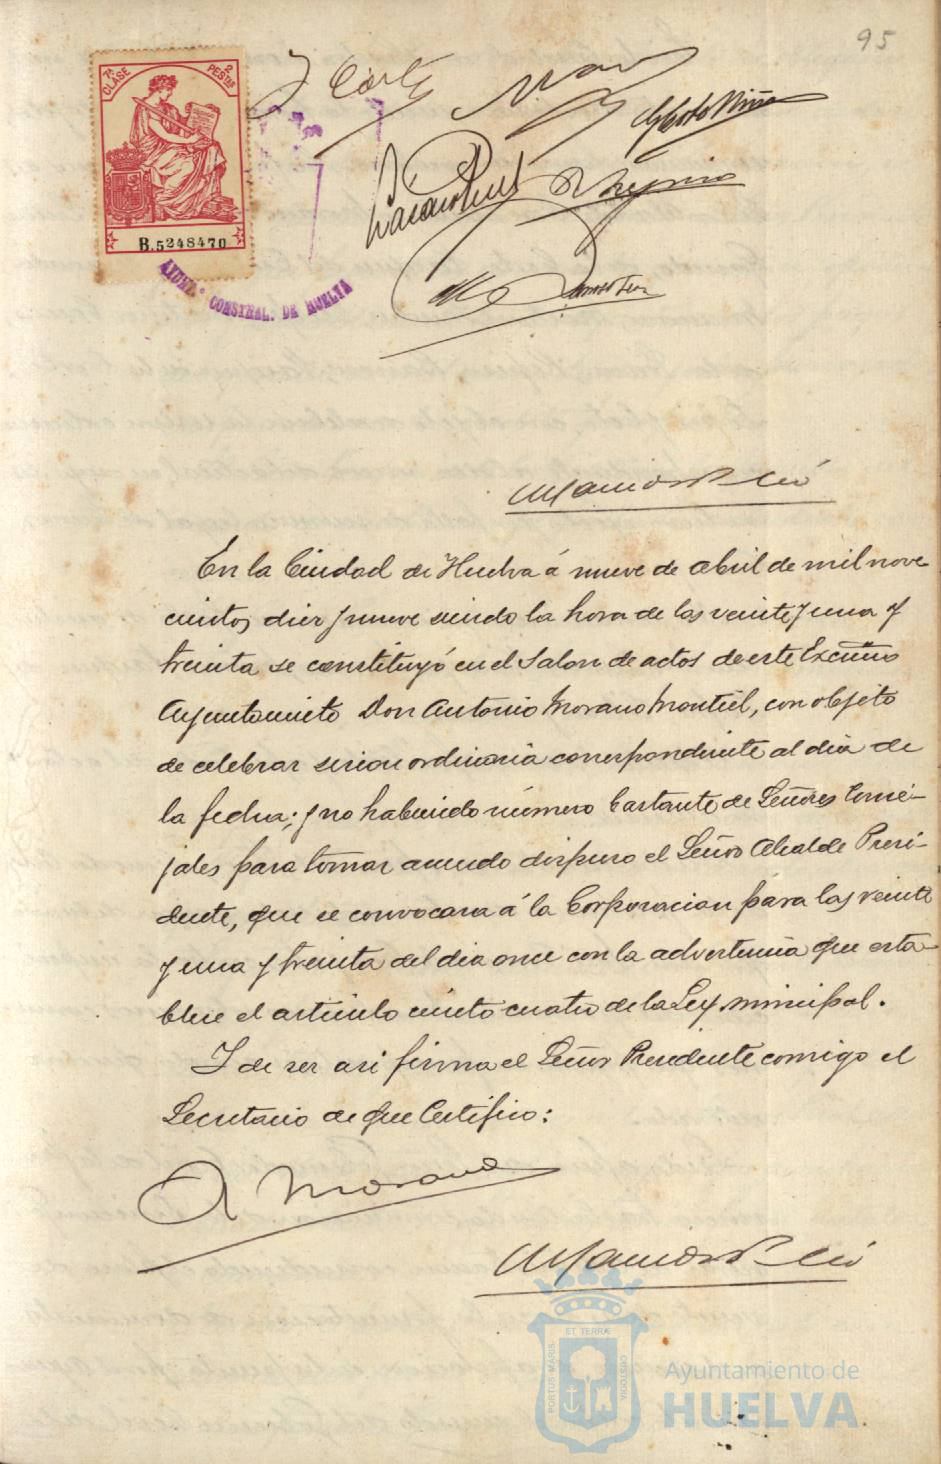 95
7ª CLASE
2 PESTAS
B.5248470
AYUNT.º CONSTNAL. DE HUELVA
En la Ciudad de Huelva á nueve de abril de mil nove
cientos diez y nueve siendo la hora de las veinte y una y
treinta se constituyó en el Salon de actos de este Excmo
Ayuntamiento Don Antonio Morano Montiel, con objeto
de celebrar sesion ordinaria correspondiente al dia de
la fecha; y no habiendo número bastante de Señores Conce-
jales para tomar acuerdo dispuso el Señor Alcalde Presi-
dente, que se convocara á la Corporacion para las veinte
y una y treinta del dia once con la advertencia que esta-
blece el artículo ciento cuatro de la Ley municipal.
Y de ser asi firma el Señor Presidente comigo el
Secretario de que Certifico:
A Morano
ET TERRÆ
PORTUS MARIS
CUSTODIA
Ayuntamiento de
HUELVA